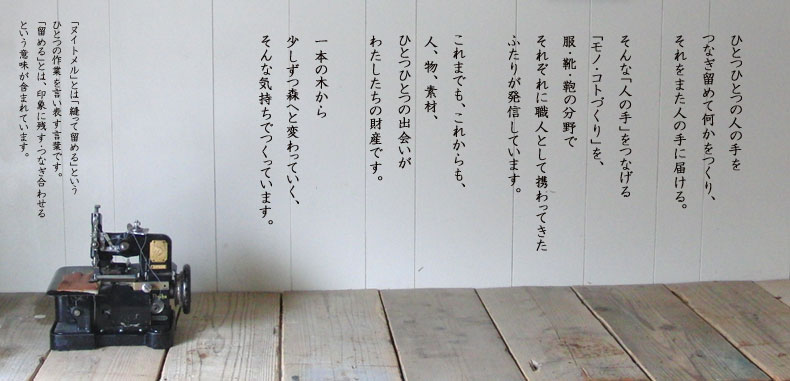 ひとつひとつの人の手を
つなぎ留めて何かをつくり、
それをまた人の手に届ける。
そんな「人の手」をつなげる
「モノ・コトづくり」を、
服・靴・鞄の分野で
それぞれに職人として携わってきた
ふたりが発信しています。
これまでも、これからも、
人、物、素材、
ひとつひとつの出会いが
わたしたちの財産です。
一本の木から
少しずつ森へと変わっていく、
そんな気持ちでつくっています。
「ヌイトメル」とは「縫って留める」という
ひとつの作業を言い表す言葉です。
「留める」とは、印象に残す・つなぎ合わせる
という意味が含まれています。